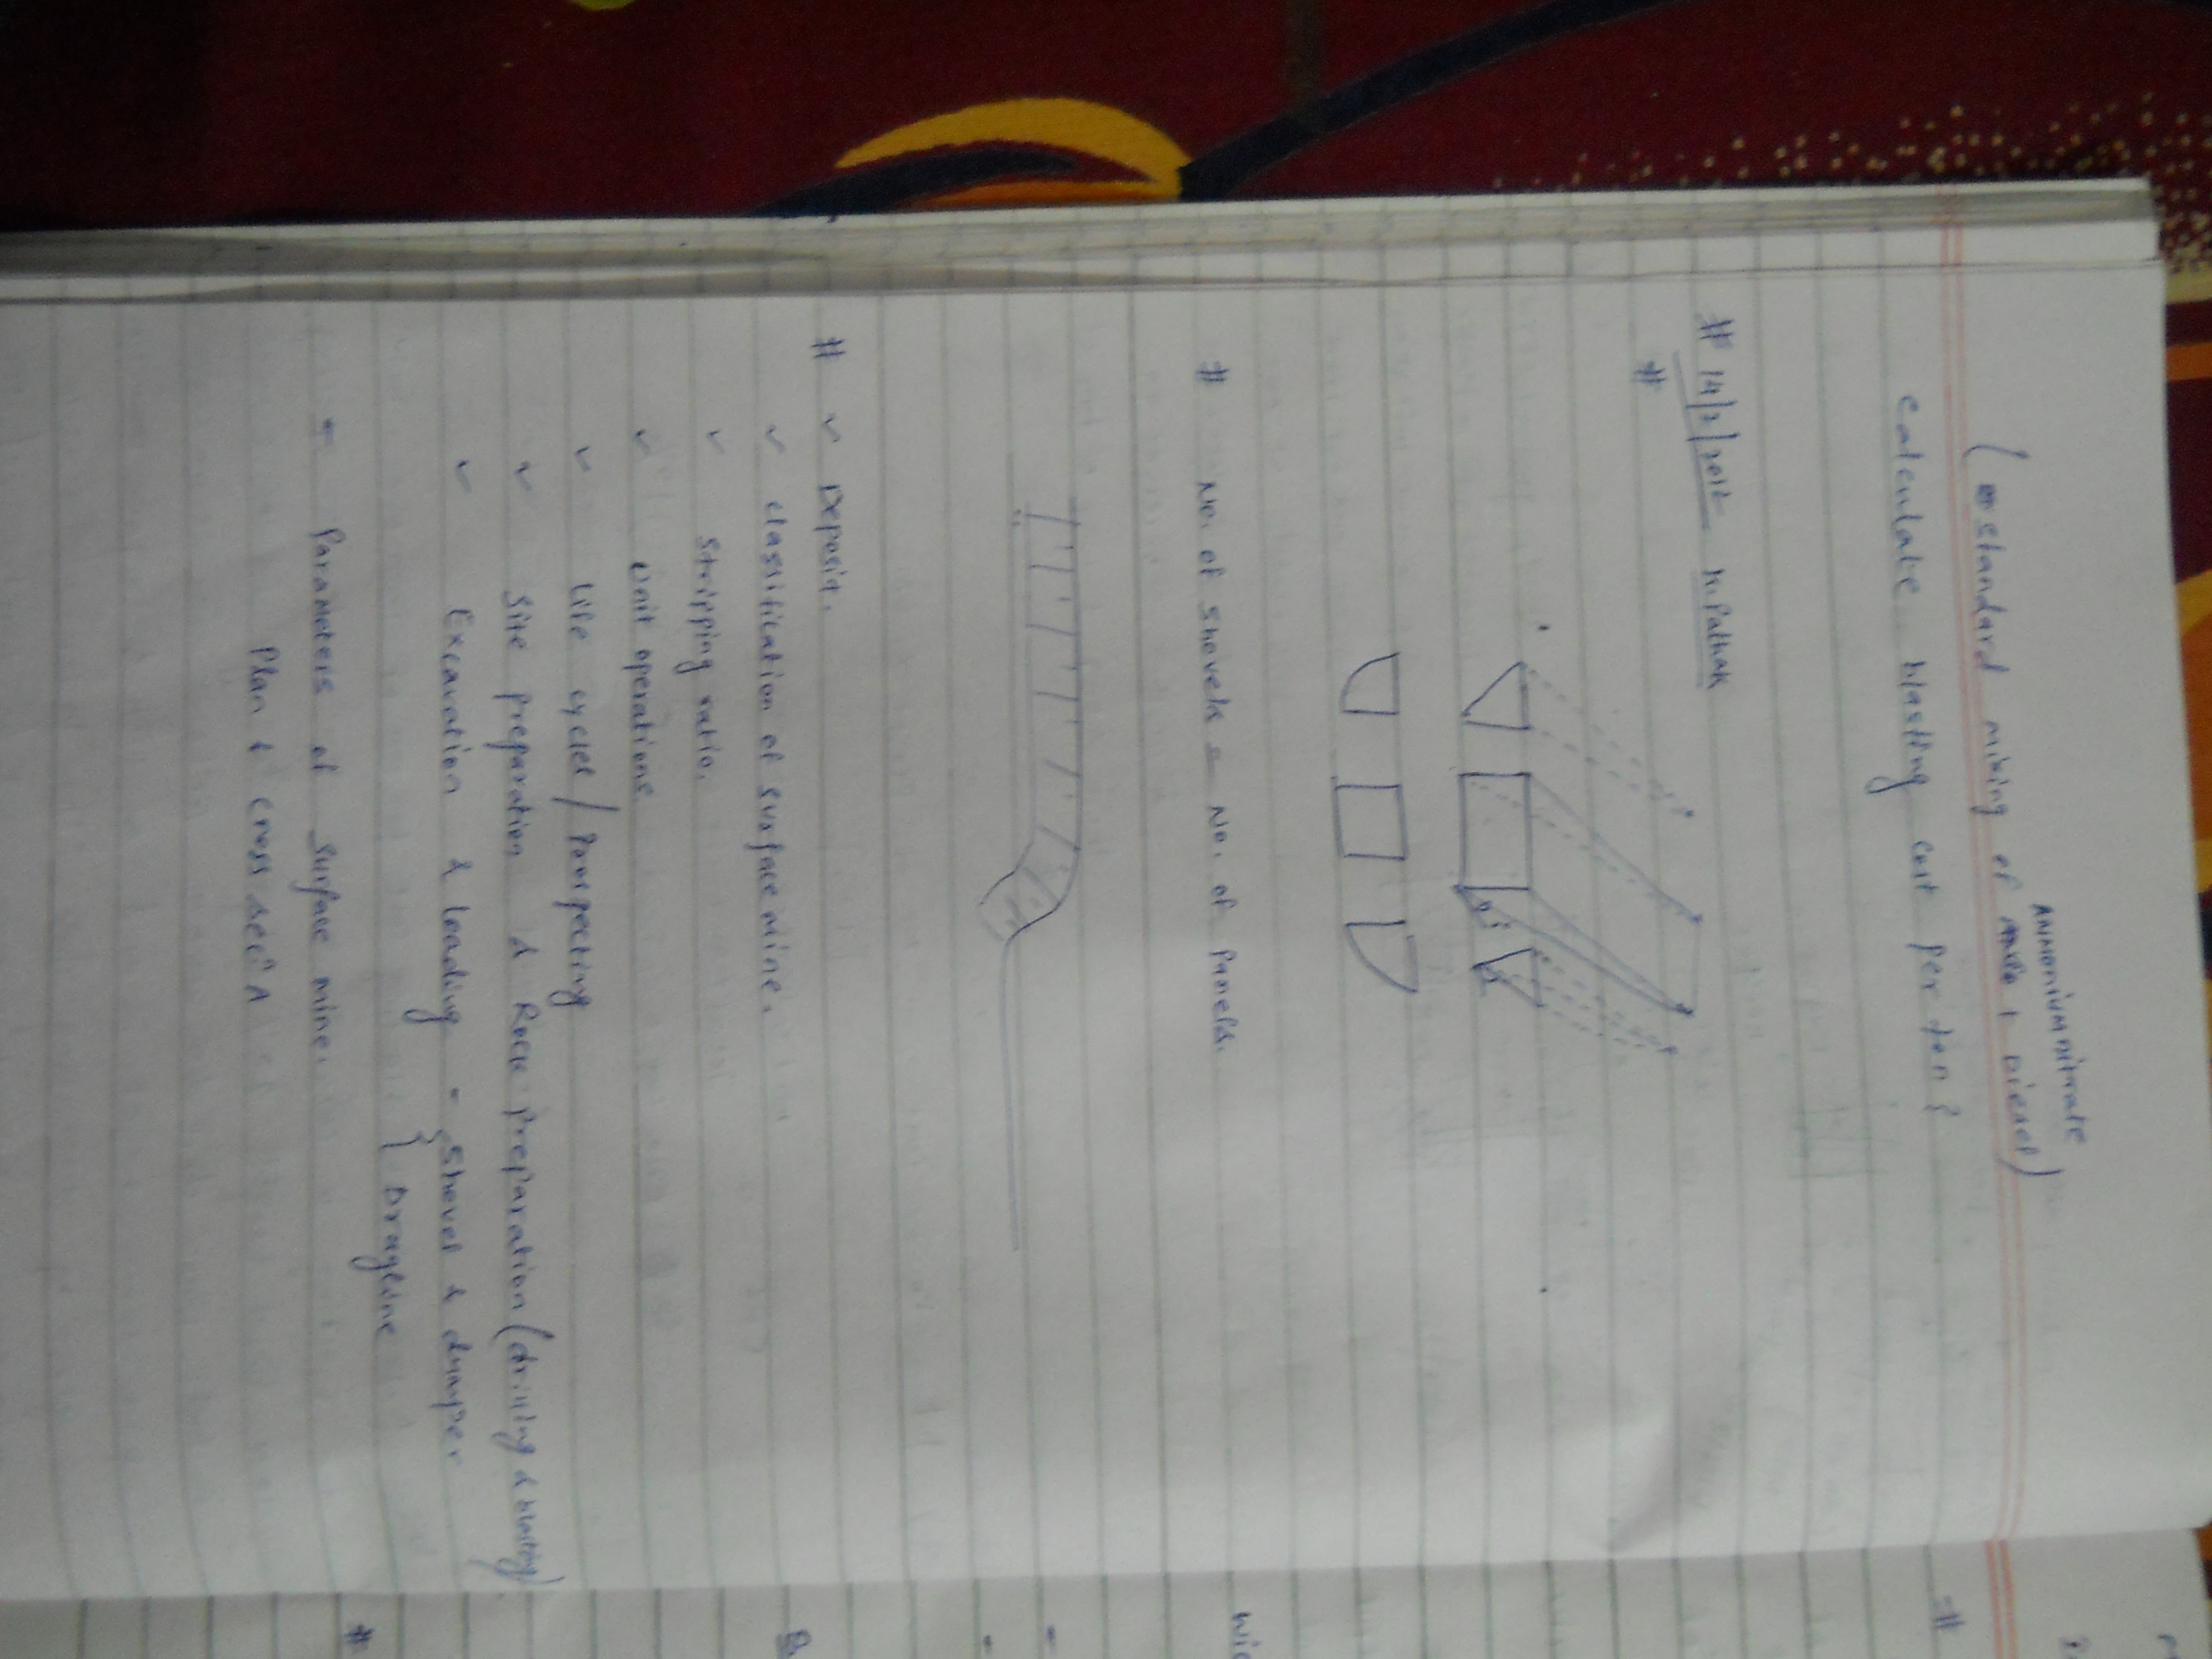 Ammonium nitrate
(standard mixing of + Diesel)
calculate blasting cost per ton?
# 14/2/2012 K. Pathak
#
# No. of shovels = No. of Panels.
# ✓ Deposit.
✓ classification of surface mine.
✓ Stripping ratio.
✓ Unit operations
✓ Life cycle / Prospecting
✓ Site preparation & Rock preparation (drilling & blasting)
✓ Excavation & loading - { Shovel & dumper
{ Dragline
- Parameters of surface mine.
Plan & cross secn
#
-
-
#